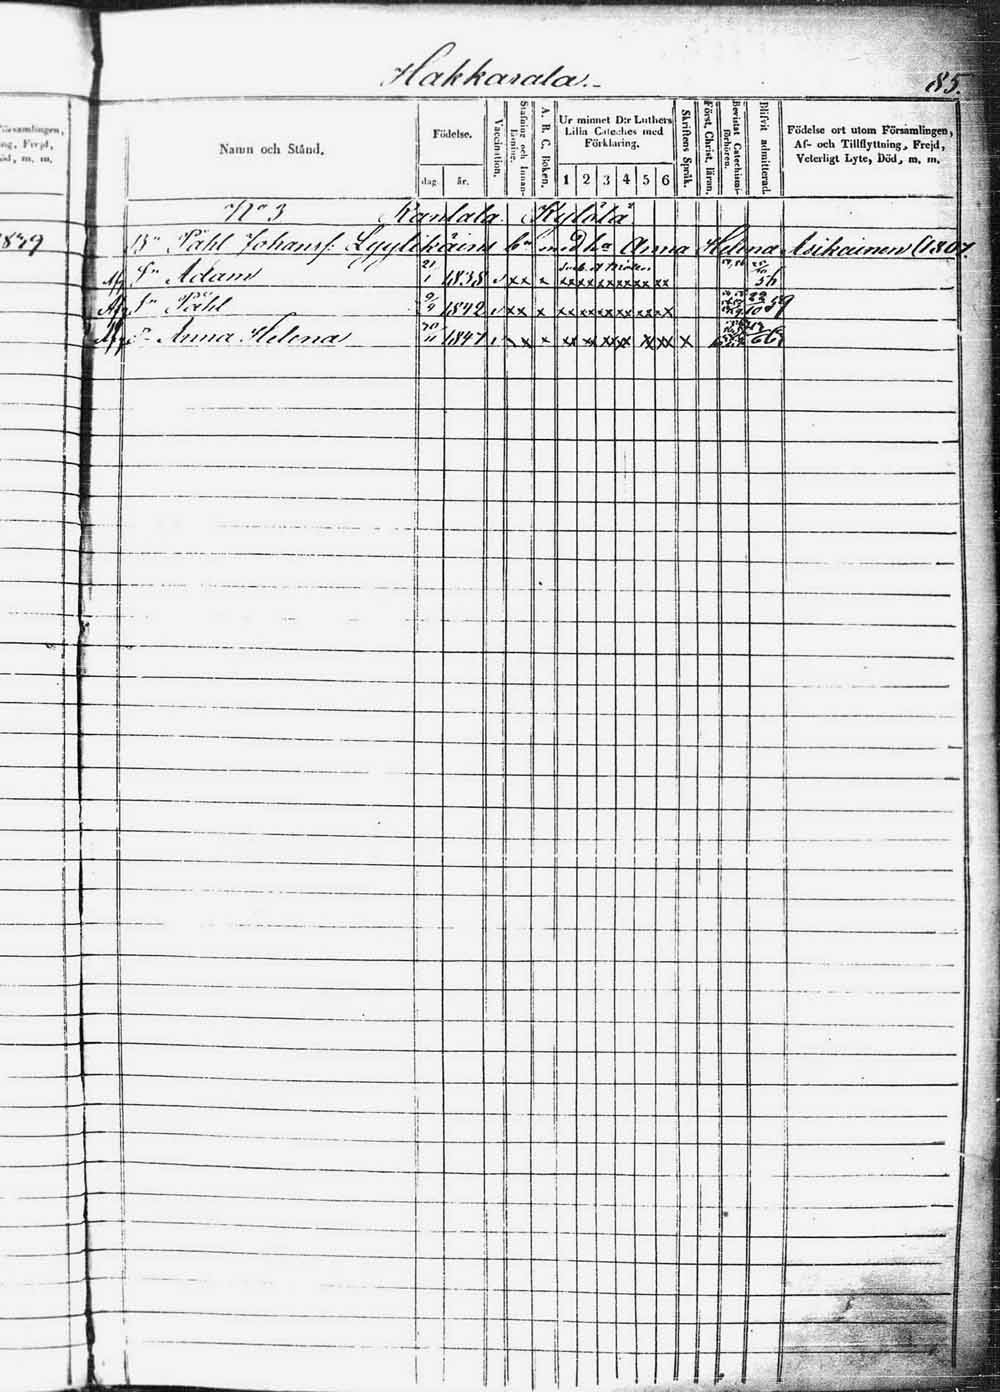 Hakkarala.
85.
Församlingen,
ng, Frejd,
öd, m. m.
Namn och Stånd.
Födelse.
dag
år.
Vaccination.
Stafning och Innan-
läsning.
A. B. C. Boken.
Ur minnet D:r Luthers
Lilla Cateches med
Förklaring.
1 2 3 4 5 6
Skriftens Språk.
Först. Christ. läran.
Bevistat Catechismi-
förhören.
Blifvit admitterad.
Födelse ort utom Församlingen,
Af- och Tillflyttning, Frejd,
Veterligt Lyte, Död, m. m.
N:o 3 Kantala. Kylölä
1839
Påhl Johansf: Lyylikäins med Anna Helena Asikainen 1807
Sn Adam 21/1 1838 x x x xx xx xx xx xx xx 56
Sn Påhl 9/9 1842 x x x xx xx xx xx xx xx 59
Anna Helena 30/11 1847 x x xx xx xx xx xx xx x 66